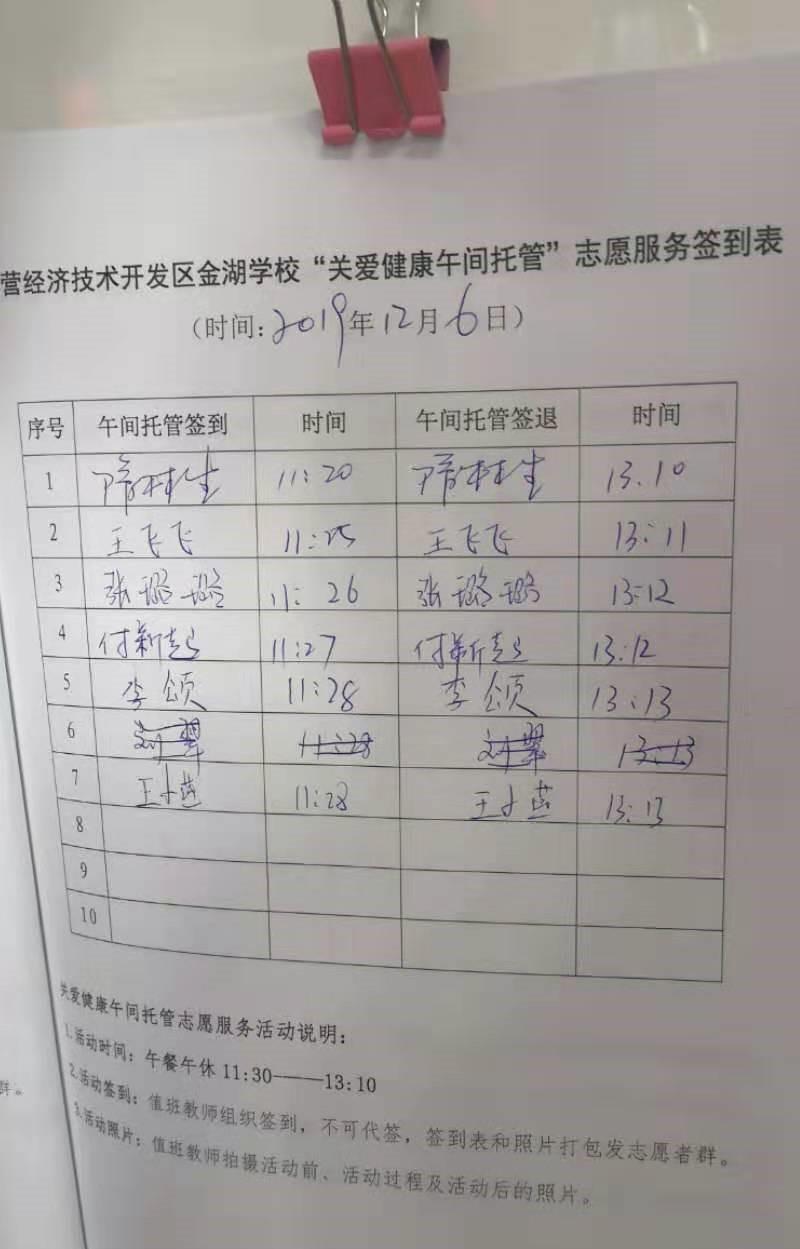 营经济技术开发区金湖学校“关爱健康午间托管”志愿服务签到表
(时间:2019年12月6日)
序号 午间托管签到 时间 午间托管签退 时间
1 11:20 13.10
2 王飞飞 11:25 王飞飞 13:11
3 张璐璐 11:26 张璐璐 13:12
4 付新超 11:27 付新超 13:12
5 李颂 11:28 李颂 13:13
6 刘翠 11:28 刘翠 13:13
7 王小燕 11:28 王小燕 13:13
8
9
10
关爱健康午间托管志愿服务活动说明:
1.活动时间:午餐午休11:30——13:10
2.活动签到:值班教师组织签到,不可代签,签到表和照片打包发志愿者群。
3.活动照片:值班教师拍摄活动前、活动过程及活动后的照片。
群。